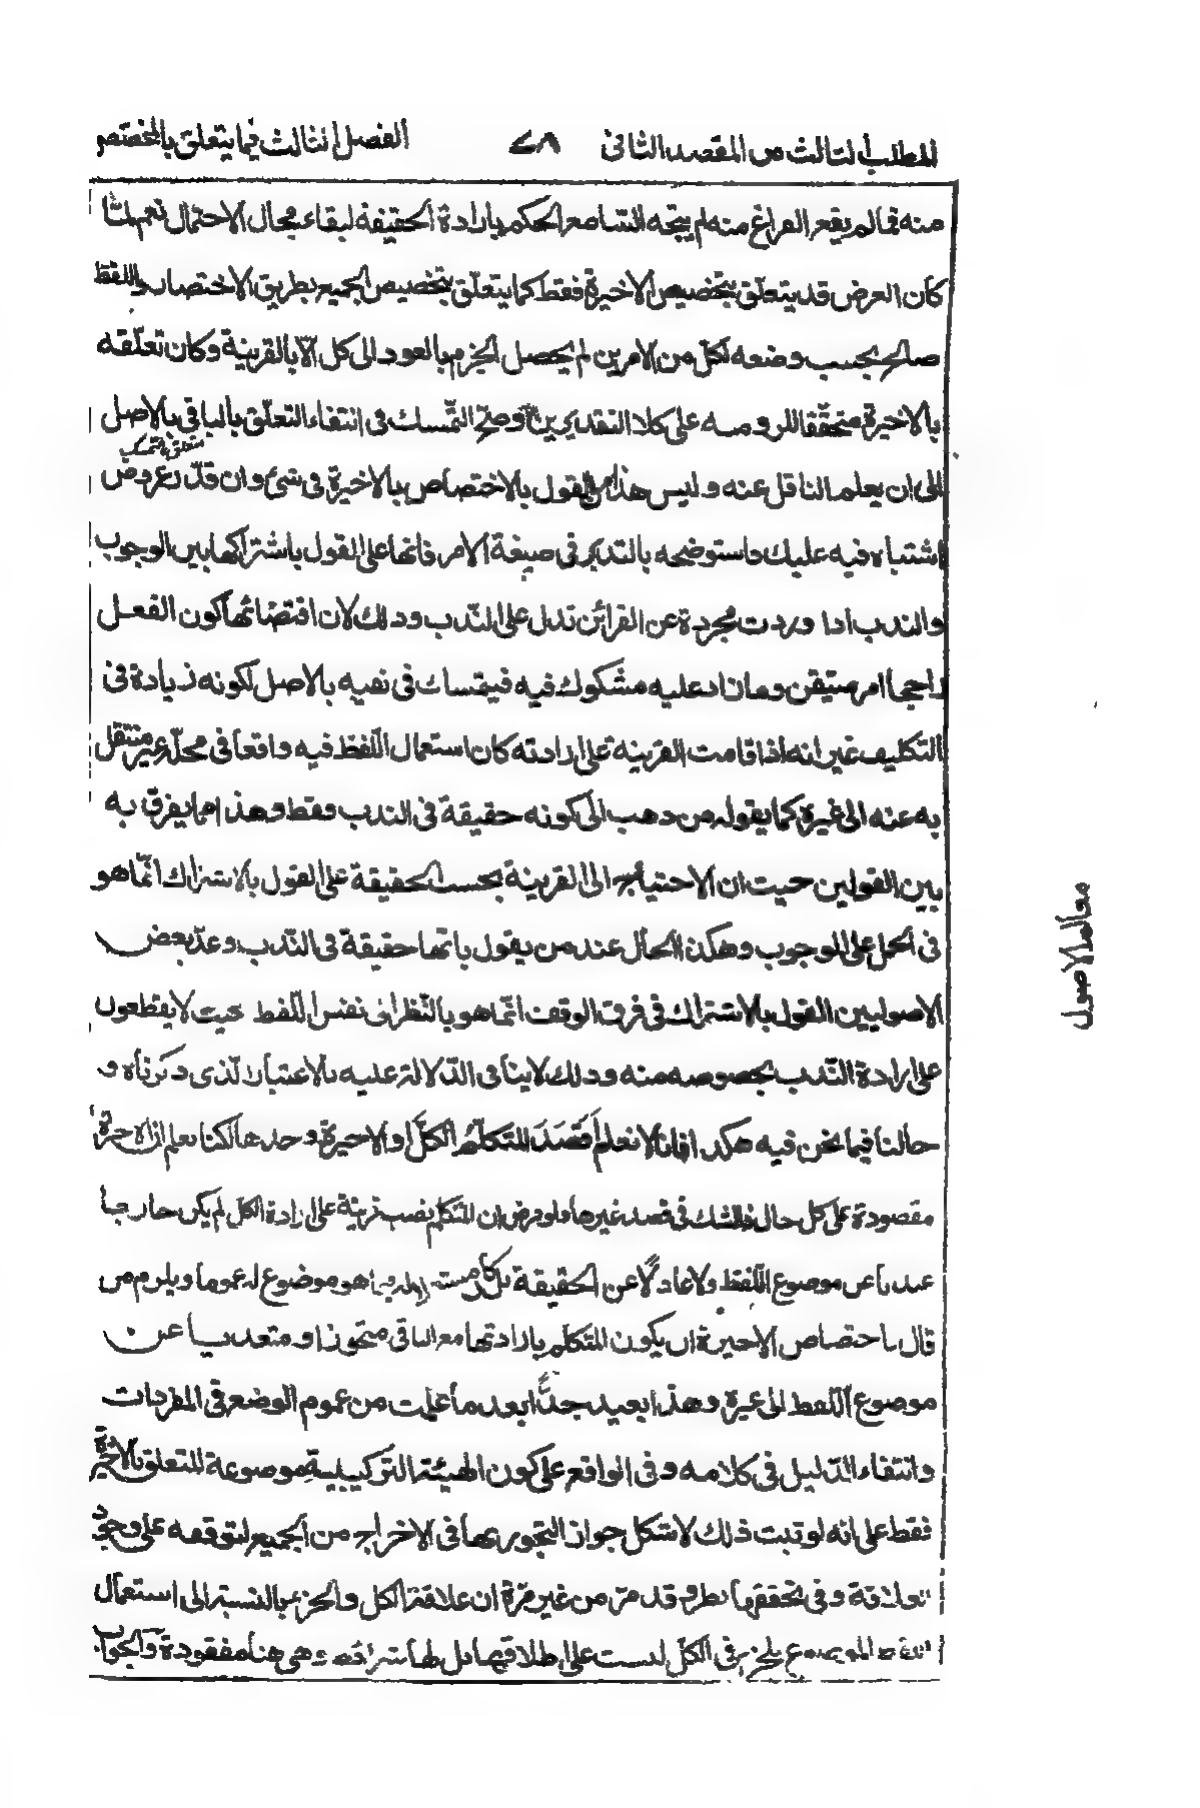 المطلب الثالث من المقصد الثانى ٧٨ الفصل الثالث فيما يتعلق بالمخصص
منه فما لم يقع الفراغ منه لم يتجه للسامع الحكم بارادة الحقيقة لبقاء مجال الاحتمال نعم لما
كان الغرض قد يتعلّق بتخصيص الاخيرة فقط كما يتعلّق بتخصيص الجميع بطريق الاختصار واللفظ
صالح بحسب وضعه لكلّ من الامرين لم يحصل الجزم بالعود الى كل الّا بالقرينة وكان تعلّقه
بالاخيرة متحقّقا للزومه على كلا التقديرين وصحّ التّمسك فى انتفاء التعلّق بالباقى بالاصل
متعلق بالتمسك
الى ان يعلم الناقل عنه وليس هذا من القول بالاختصاص بالاخيرة فى شئ وان قدّر عروض
اشتباه فيه عليك فاستوضحه بالتدبّر فى صيغة الامر فانها على القول باشتراكها بين الوجوب
والندب اذا وردت مجردة عن القرائن تدل على النّدب وذلك لان اقتضائها كون الفعل
راجحا امر متيقن وما زاد عليه مشكوك فيه فيتمسك فى نفيه بالاصل لكونه زيادة فى
التكليف غير انه اذا قامت القرينة على ارادته كان استعمال اللّفظ فيه واقعا فى محلّه غير منتقل
به عنه الى غيره كما يقوله من ذهب الى كونه حقيقة فى الندب فقط وهذا مما يفرق به
بين القولين حيث ان الاحتياج الى القرينة بحسب الحقيقة على القول بالاشتراك انّما هو
فى الحمل على الوجوب وهكذا الحال عند من يقول بانّها حقيقة فى النّدب وعدّ بعض
الاصوليين القول بالاشتراك فى فرق الوقف انّما هو بالنّظر الى نفس اللّفظ حيث لا يقطعون
على ارادة النّدب بخصوصه منه وذلك لا ينافى الدّلالة عليه بالاعتبار الّذى ذكرناه و
حالنا فيما نحن فيه هكذا فانا لا نعلم أقَصَدَ المتكلّمُ الكلَّ او الاخيرة وحدها لكنا نعلم ان الاخيرة
مقصودة على كل حال فالشك فى قصد غيرها ولو فرض ان المتكلم نصب قرينة على ارادة الكل لم يكن خارجا
عندنا عن موضوع اللّفظ ولا عادلًا عن الحقيقة بل كان مستعملا له فيما هو موضوع له عموما ويلزم من
قال باختصاص الاخيرة ان يكون المتكلم بارادتها مع الباقى متجوزا ومتعديا عن
موضوع اللّفظ الى غيره وهذا بعيد جدًّا بعد ما علمت من عموم الوضع فى المفردات
وانتفاء الدّليل فى كلامه وفى الواقع على كون الهيئة التركيبيةِ موضوعة للتعلق بالاخيرة
فقط على انه لو ثبت ذلك لاشكل جواز التجوز بها فى الاخراج من الجميع لتوقفه على وجود
العلاقة وفى تحققها نظر وقد مرّ من غير مرّة ان علاقة الكل والجزء بالنسبة الى استعمال
اللفظ الموضوع للجزء فى الكلّ ليست على اطلاقها بل لها شرائط وهى هنا مفقودة والجواب
معالم الاصول